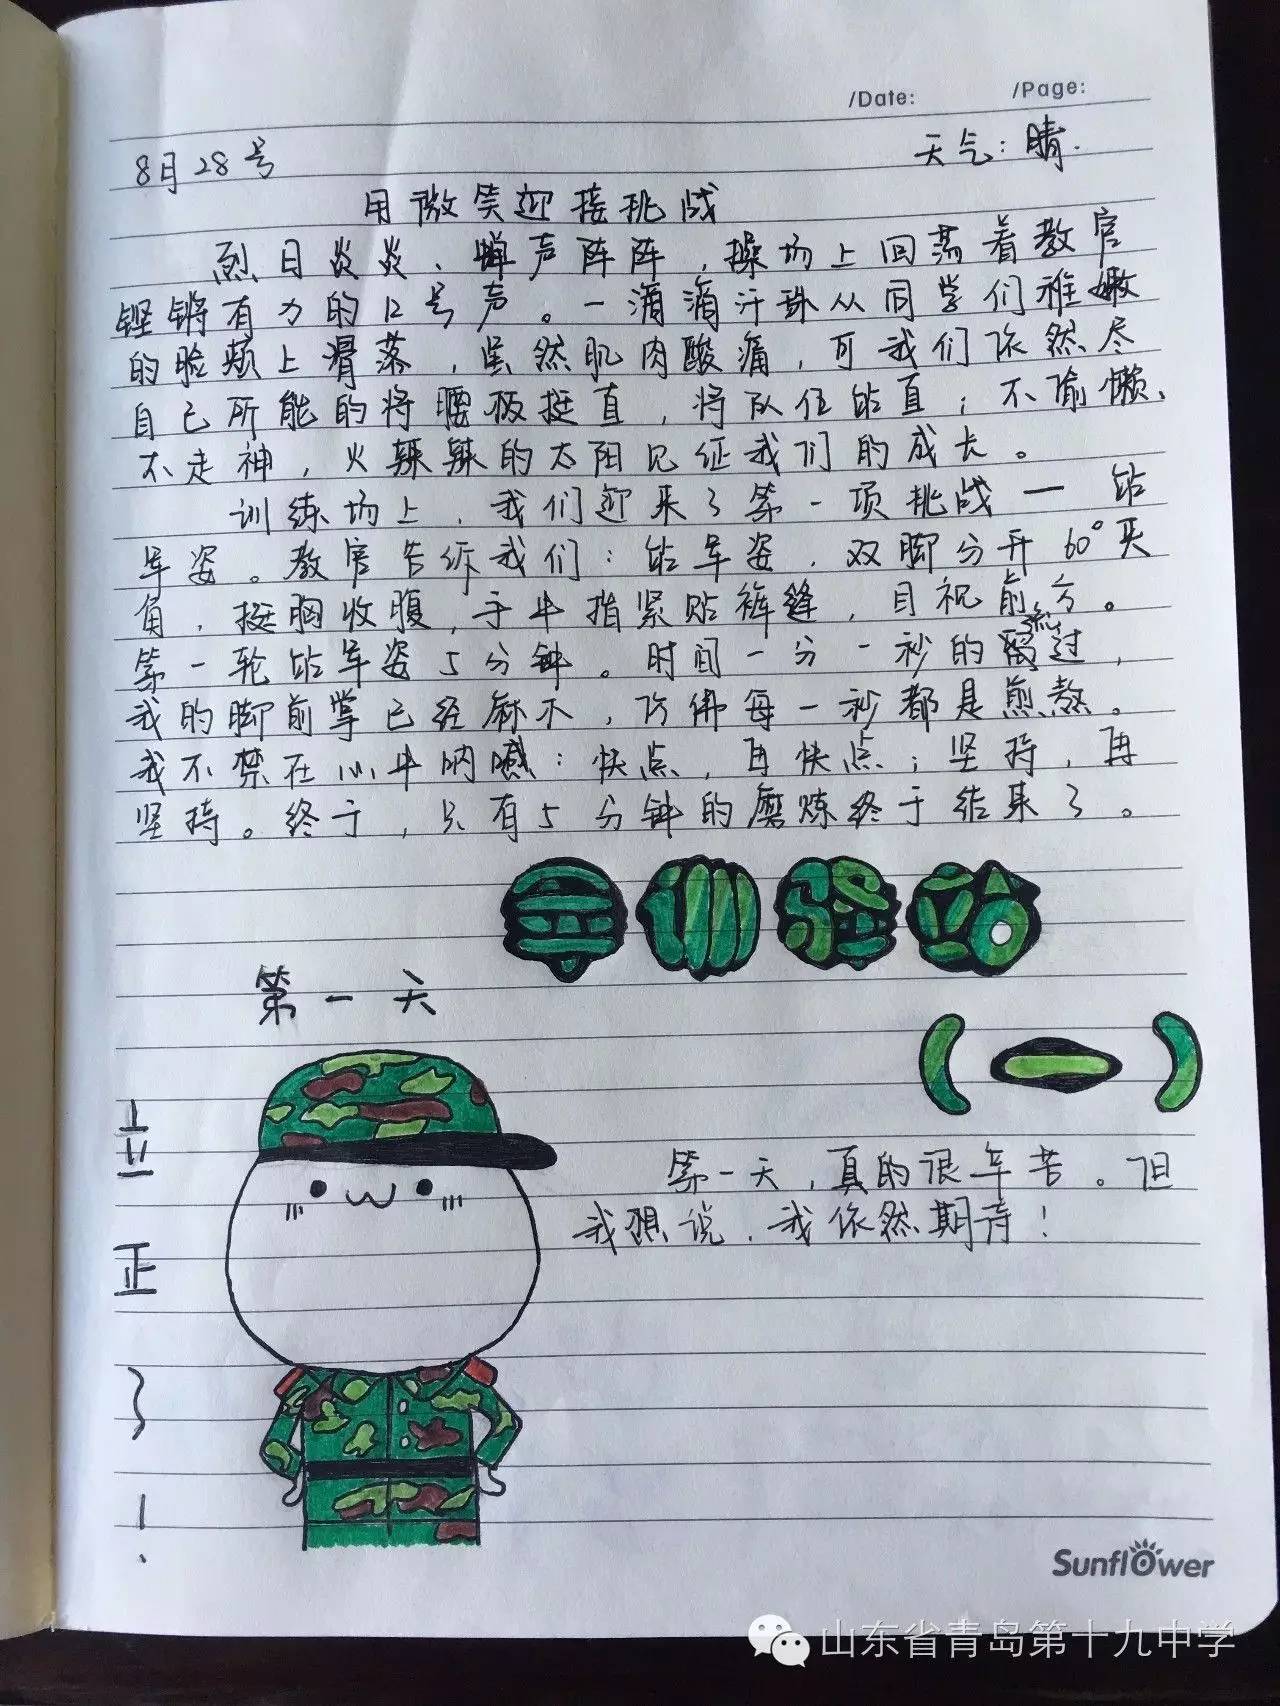 /Date: /Page:
8月28号 天气：晴.
用微笑迎接挑战
烈日炎炎、蝉声阵阵，操场上回荡着教官
铿锵有力的口号声。一滴滴汗珠从同学们稚嫩
的脸颊上滑落，虽然肌肉酸痛，可我们依然尽
自己所能的将腰板挺直，将队伍站直；不偷懒、
不走神，火辣辣的太阳见证我们的成长。
训练场上，我们迎来了第一项挑战——站
军姿。教官告诉我们：站军姿，双脚分开60°夹
角，挺胸收腹，手中指紧贴裤缝，目视前方。
第一轮站军姿5分钟。时间一分一秒的流过，
我的脚前掌已经麻木，仿佛每一秒都是煎熬。
我不禁在心中呐喊：快点，再快点；坚持，再
坚持。终于，只有5分钟的磨炼终于结束了。
军训驿站
（一）
第一天
立正了！
第一天，真的很辛苦。但
我想说，我依然期待！
Sunflower
山东省青岛第十九中学